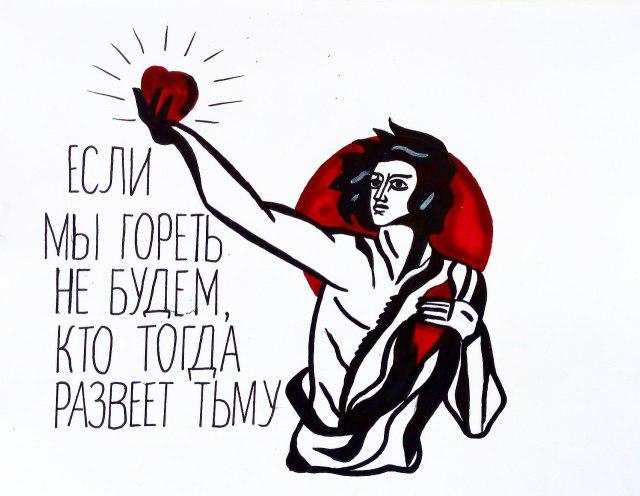 ЕСЛИ
МЫ ГОРЕТЬ
НЕ БУДЕМ,
КТО ТОГДА
РАЗВЕЕТ ТЬМУ